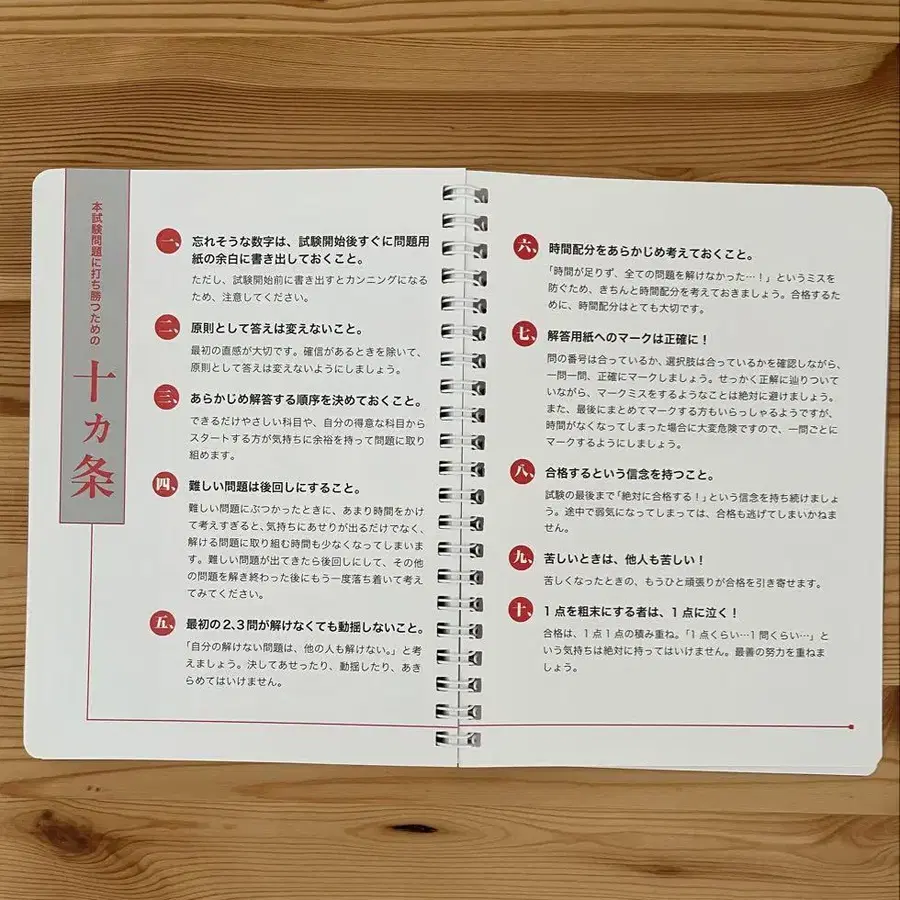 本試験問題に打ち勝つための
十ヵ条
一、忘れそうな数字は、試験開始後すぐに問題用
紙の余白に書き出しておくこと。
ただし、試験開始前に書き出すとカンニングになる
ため、注意してください。
二、原則として答えは変えないこと。
最初の直感が大切です。確信があるときを除いて、
原則として答えは変えないようにしましょう。
三、あらかじめ解答する順序を決めておくこと。
できるだけやさしい科目や、自分の得意な科目から
スタートする方が気持ちに余裕を持って問題に取り
組めます。
四、難しい問題は後回しにすること。
難しい問題にぶつかったときに、あまり時間をかけ
て考えすぎると、気持ちにあせりが出るだけでなく、
解ける問題に取り組む時間も少なくなってしまいま
す。難しい問題が出てきたら後回しにして、その他
の問題を解き終わった後にもう一度落ち着いて考え
てみてください。
五、最初の2、3問が解けなくても動揺しないこと。
「自分の解けない問題は、他の人も解けない。」と考
えましょう。決してあせったり、動揺したり、あき
らめてはいけません。
六、時間配分をあらかじめ考えておくこと。
「時間が足りず、全ての問題を解けなかった…！」というミスを
防ぐため、きちんと時間配分を考えておきましょう。合格するた
めに、時間配分はとても大切です。
七、解答用紙へのマークは正確に！
問の番号は合っているか、選択肢は合っているかを確認しながら、
一問一問、正確にマークしましょう。せっかく正解に辿りついて
いながら、マークミスをするようなことは絶対に避けましょう。
また、最後にまとめてマークする方もいらっしゃるようですが、
時間がなくなってしまった場合に大変危険ですので、一問ごとに
マークするようにしましょう。
八、合格するという信念を持つこと。
試験の最後まで「絶対に合格する！」という信念を持ち続けましょ
う。途中で弱気になってしまっては、合格も逃げてしまいかねま
せん。
九、苦しいときは、他人も苦しい！
苦しくなったときの、もうひと頑張りが合格を引き寄せます。
十、1点を粗末にする者は、1点に泣く！
合格は、1点1点の積み重ね。「1点くらい…1問くらい…」と
いう気持ちは絶対に持ってはいけません。最善の努力を重ねま
しょう。